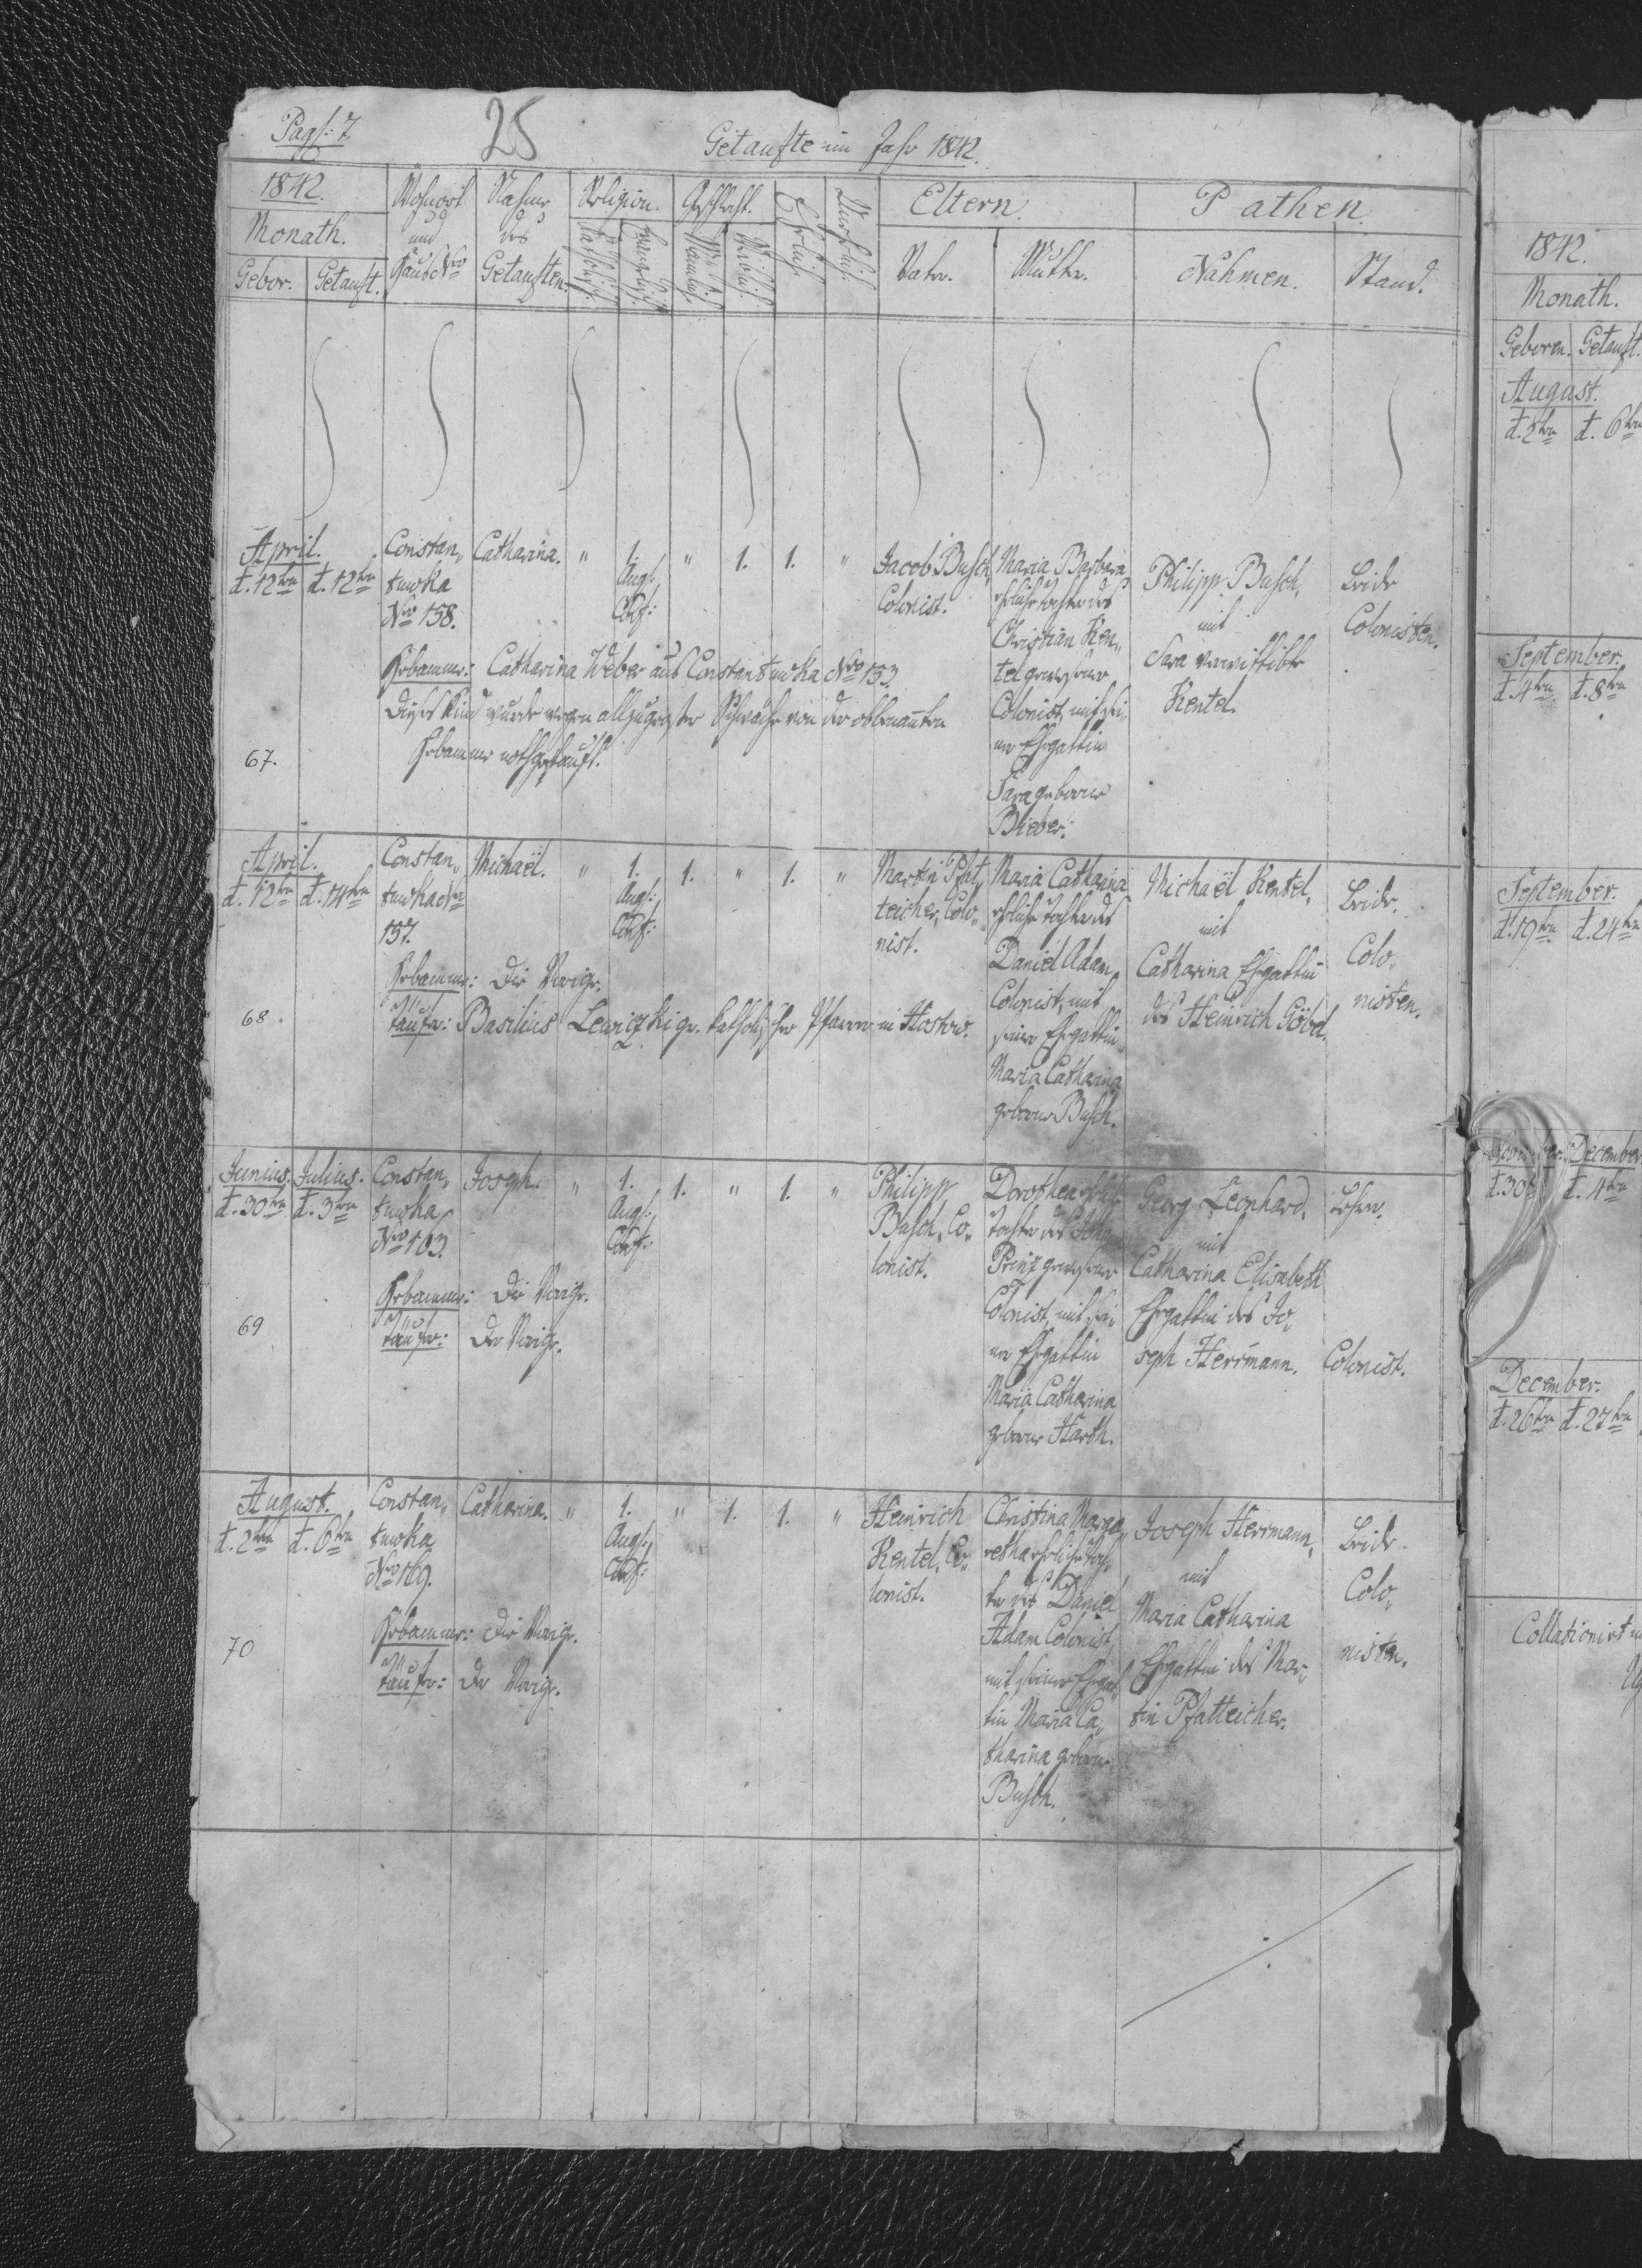 Pag: 7.
25
Getaufte im Jahr 1842.
1842.
Monath.
Gebor. Getauft.
Wohnort
und
Haus Nro
Nahme
des
Getauften.
Religion.
Katholisch.
Evangelisch.
Geschlecht.
Männl.
Weibl.
Ehelich.
Unehelich.
Eltern.
Vater. Mutter.
Pathen.
Nahmen. Stand.
April.
d. 12ten d. 12ten
Constan„
tuwka
Nro 158.
Catharina. „ 1. „ 1. 1. „
Augs:
Conf:
Jacob Busch,
Colonist.
Maria Barbara
eheliche Tochter des
Christian Ken„
tel gewesener
Colonist, mit sei„
ner Ehegattin
Sara geborne
Bieber.
Philipp Busch,
mit
Sara verwittibte
Kentel.
Beide
Colonisten.
Hebamme: Catharina Weber aus Constantuwka Nro 153.
Dieses Kind wurde wegen allzugroßer Schwäche von der obbenannten
Hebamme nothgetauft.
67.
April.
d. 12ten d. 14ten
Constan„
tuwka Nro
157.
Michaël. „ 1. 1. „ 1. „
Augs:
Conf:
Martin Pfat„
teicher, Colo„
nist.
Maria Catharina
eheliche Tochter des
Daniel Adam,
Colonist, mit
seiner Ehegattin
Maria Catharina
geborne Busch.
Michaël Kentel,
mit
Catharina Ehegattin
des Heinrich Göbel.
Beide.
Colo„
nisten.
Hebamme: Die Vorige.
Täufer: Basilius Lewizki gr. katholischer Pfarrer in Hoshw.
68.
Junius. Julius.
d. 30ten d. 3ten
Constan„
tuwka
Nro 163.
Joseph. „ 1. 1. „ 1. „
Augs:
Conf:
Philipp
Busch, Co„
lonist.
Dorothea eheliche
Tochter des
Prinz gewesener
Colonist, mit sei„
ner Ehegattin
Maria Catharina
geborne Harth.
Georg Leonhard,
mit
Catharina Elisabeth
Ehegattin des Jo„
seph Herrmann.
Lehrer.
Colonist.
Hebamme: Die Vorige.
Täufer: Der Vorige.
69
August.
d. 2ten d. 6ten
Constan„
tuwka
Nro 169.
Catharina. „ 1. „ 1. 1. „
Augs:
Conf:
Heinrich
Kentel, Co„
lonist.
Christina Marga„
retha eheliche Toch„
ter des Daniel
Adam Colonist,
mit seiner Ehegat„
tin Maria Ca„
tharina geborne
Busch.
Joseph Herrmann,
mit
Maria Catharina
Ehegattin des Mar„
tin Pfatteicher.
Beide.
Colo„
nisten.
Hebamme: Die Vorige.
Täufer: Der Vorige.
70
1842.
Monath.
Geboren. Getauft.
August.
d. 2ten d. 6ten
September.
d. 4ten d. 8ten
September.
d. 19ten d. 24ten
December
d. 30 d. 4ten
December.
d. 26ten d. 27ten
Collationirt